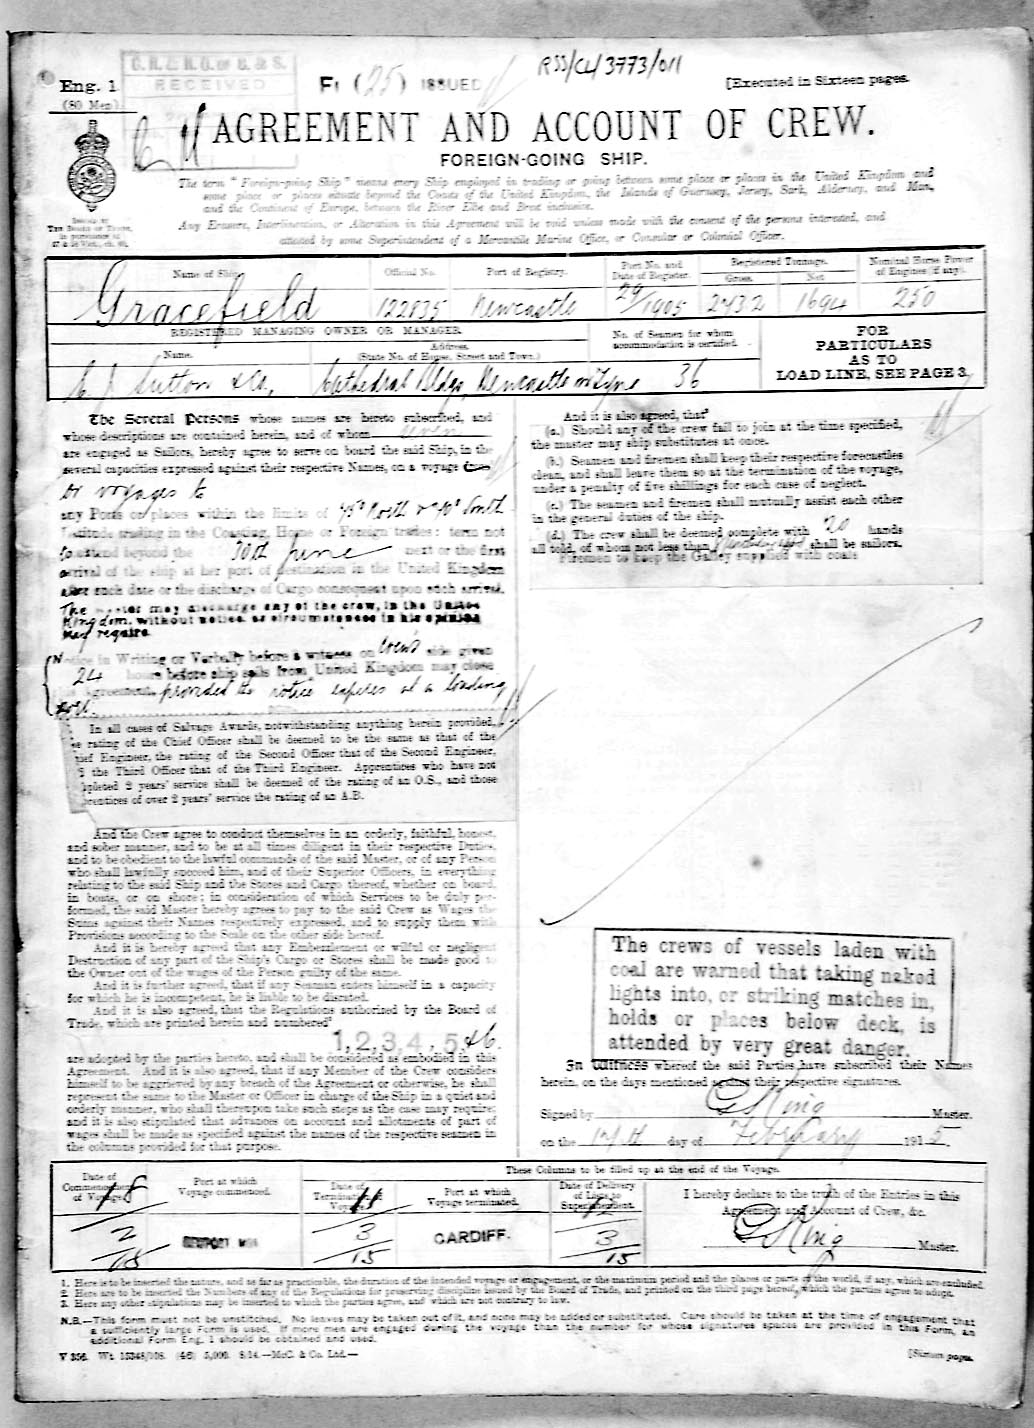 RSS/CL/3773/011
C.R. & R.O. of S. & S.
RECEIVED
Eng. 1
(80 Men)
F1 (25) ISSUED
[Executed in Sixteen pages.
AGREEMENT AND ACCOUNT OF CREW.
FOREIGN-GOING SHIP.
The term "Foreign-going Ship" means every Ship employed in trading or going between some place or places in the United Kingdom and
some place or places situate beyond the Coasts of the United Kingdom, the Islands of Guernsey, Jersey, Sark, Alderney, and Man,
and the Continent of Europe, between the River Elbe and Brest inclusive.
Any Erasure, Interlineation, or Alteration in this Agreement will be void unless made with the consent of the persons interested, and
attested by some Superintendent of a Mercantile Marine Office, or Consular or Colonial Officer.
Issued by
The Board of Trade,
in pursuance of
57 & 58 Vict., ch. 60.
Name of Ship. Official No. Port of Registry. Port No. and Date of Register. Registered Tonnage. Gross. Net. Nominal Horse Power of Engines (if any).
Gracefield 122835 Newcastle 29/1905 2432 1694 250
REGISTERED MANAGING OWNER OR MANAGER.
Name. Address. (State No. of House, Street and Town.)
No. of Seamen for whom accommodation is certified.
FOR PARTICULARS AS TO LOAD LINE, SEE PAGE 3.
Sutton & Co. Cathedral Bldgs, Newcastle on Tyne 36
The Several Persons whose names are hereto subscribed, and
whose descriptions are contained herein, and of whom seven
are engaged as Sailors, hereby agree to serve on board the said Ship, in the
several capacities expressed against their respective Names, on a voyage
or voyages to
any Ports or places within the limits of 75° North & 60° South
Latitude trading in the Coasting, Home or Foreign trades term not
to extend beyond the 30th June next or the first
arrival of the ship at her port of destination in the United Kingdom
after such date or the discharge of Cargo consequent upon such arrival.
The Master may discharge any of the crew, in the United
Kingdom, without notice, as circumstances in his opinion
may require.
Notice in Writing or Verbally before a witness on Crew's side given
24 hours before ship sails from United Kingdom may close
this Agreement, provided the notice expires at a loading
port.
In all cases of Salvage Awards, notwithstanding anything herein provided,
the rating of the Chief Officer shall be deemed to be the same as that of the
Chief Engineer, the rating of the Second Officer that of the Second Engineer,
the Third Officer that of the Third Engineer. Apprentices who have not
completed 2 years' service shall be deemed of the rating of an O.S., and those
apprentices of over 2 years' service the rating of an A.B.
And the Crew agree to conduct themselves in an orderly, faithful, honest,
and sober manner, and to be at all times diligent in their respective Duties,
and to be obedient to the lawful commands of the said Master, or of any Person
who shall lawfully succeed him, and of their Superior Officers, in everything
relating to the said Ship and the Stores and Cargo thereof, whether on board,
in boats, or on shore; in consideration of which Services to be duly per-
formed, the said Master hereby agrees to pay to the said Crew as Wages the
Sums against their Names respectively expressed, and to supply them with
Provisions according to the Scale on the other side hereof.
And it is hereby agreed that any Embezzlement or wilful or negligent
Destruction of any part of the Ship's Cargo or Stores shall be made good to
the Owner out of the wages of the Person guilty of the same.
And it is further agreed, that if any Seaman enters himself in a capacity
for which he is incompetent, he is liable to be disrated.
And it is also agreed, that the Regulations authorised by the Board of
Trade, which are printed herein and numbered²
1, 2, 3, 4, 5 & 6.
are adopted by the parties hereto, and shall be considered as embodied in this
Agreement. And it is also agreed, that if any Member of the Crew considers
himself to be aggrieved by any breach of the Agreement or otherwise, he shall
represent the same to the Master or Officer in charge of the Ship in a quiet and
orderly manner, who shall thereupon take such steps as the case may require;
and it is also stipulated that advances on account and allotments of part of
wages shall be made as specified against the names of the respective seamen in
the columns provided for that purpose.
And it is also agreed, that³
(a.) Should any of the crew fail to join at the time specified,
the master may ship substitutes at once.
(b.) Seamen and firemen shall keep their respective forecastles
clean, and shall leave them so at the termination of the voyage,
under a penalty of five shillings for each case of neglect.
(c.) The seamen and firemen shall mutually assist each other
in the general duties of the ship.
(d.) The crew shall be deemed complete with 20 hands
all told, of whom not less than shall be sailors.
Firemen to keep the Galley supplied with coals
The crews of vessels laden with
coal are warned that taking naked
lights into, or striking matches in,
holds or places below deck, is
attended by very great danger.
In Witness whereof the said Parties have subscribed their Names
herein, on the days mentioned against their respective signatures.
Signed by G S King Master.
on the 17th day of February 1915.
These Columns to be filled up at the end of the Voyage.
Date of Commencement of Voyage. Port at which Voyage commenced. Date of Termination of Voyage. Port at which Voyage terminated. Date of Delivery of Lists to Superintendent.
I hereby declare to the truth of the Entries in this
Agreement and Account of Crew, &c.
18/2/15 NEWPORT MON 11/3/15 CARDIFF. 12/3/15
G S King Master.
1. Here is to be inserted the nature, and as far as practicable, the duration of the intended voyage or engagement, or the maximum period and the places or parts of the world, if any, which are excluded.
2. Here are to be inserted the Numbers of any of the Regulations for preserving discipline issued by the Board of Trade, and printed on the third page hereof, which the parties agree to adopt.
3. Here any other stipulations may be inserted to which the parties agree, and which are not contrary to law.
N.B.—This form must not be unstitched. No leaves may be taken out of it, and none may be added or substituted. Care should be taken at the time of engagement that
a sufficiently large Form is used. If more men are engaged during the voyage than the number for whose signatures spaces are provided in this Form, an
additional Form Eng. 1 should be obtained and used.
V 356. Wt. 15348/708. (46) 5,000. 8/14.—McC. & Co. Ltd.—
[Sixteen pages.